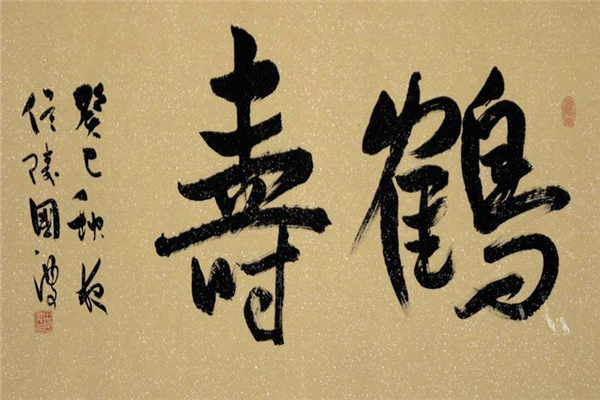 鶴壽
癸巳秋夜
信陵國